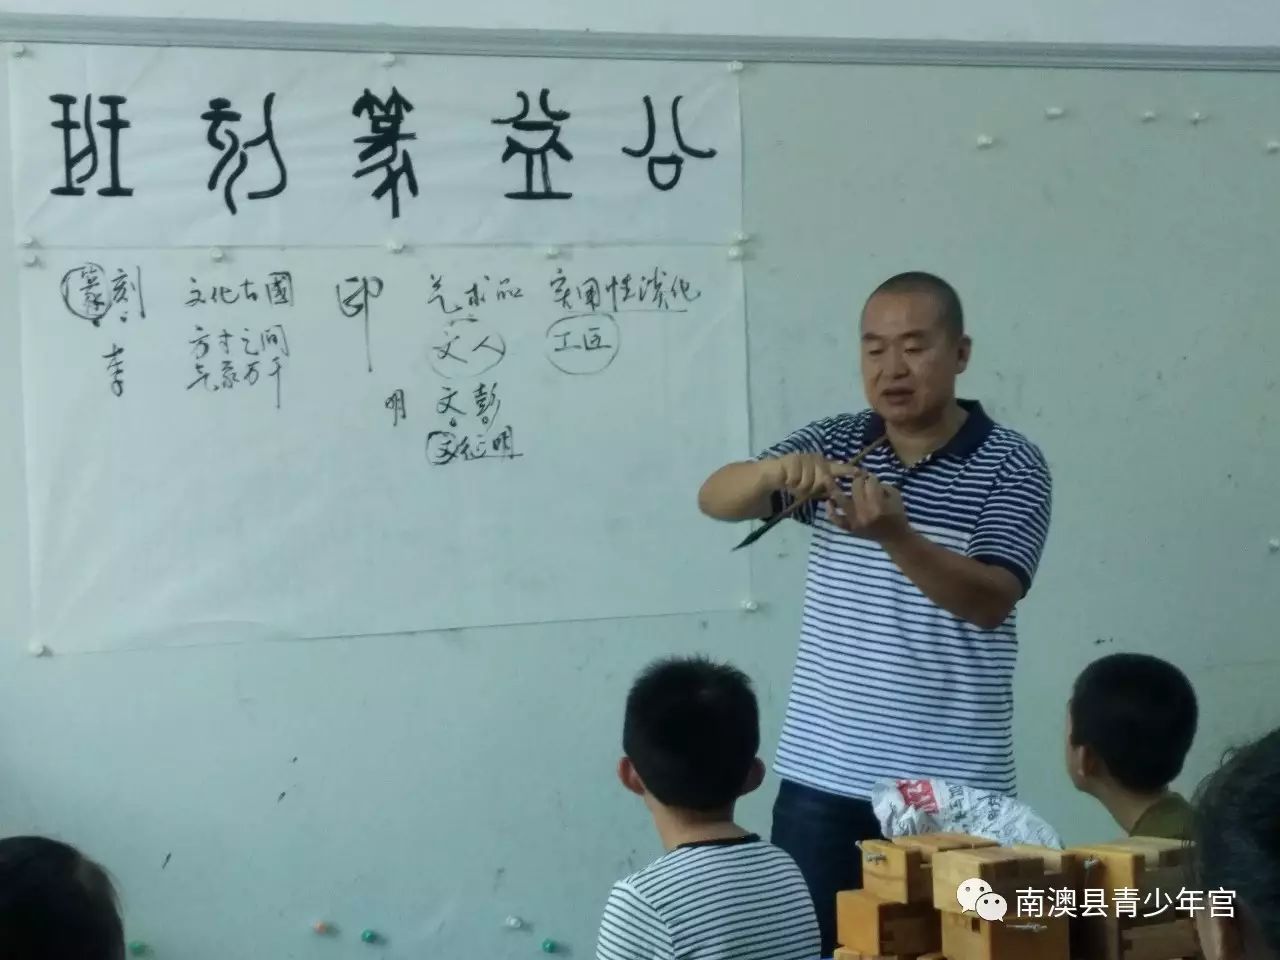 公益篆刻班
篆刻
李
文化古國
方寸之间
气象万千
印
艺术品
文人
明 文彭
文征明
实用性淡化
工匠
南澳县青少年宫